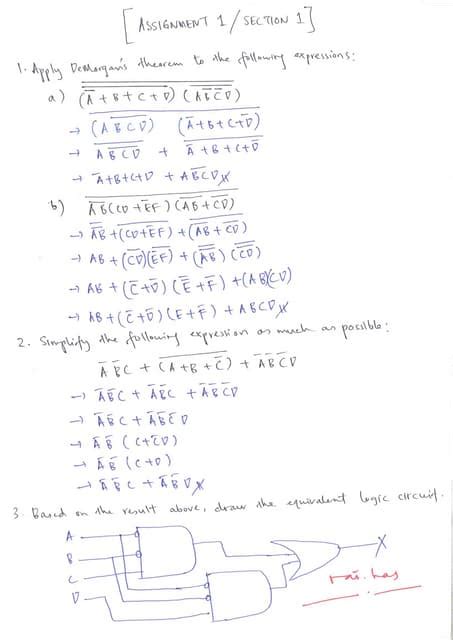 [ASSIGNMENT 1 / SECTION 1]
1. Apply DeMorgan's theorem to the following expressions:
a) (A̅ + B + C + D̅) (A̅B̅C̅D)
→ (A B C D) (A̅+B+C+D̅)
→ A B C D + A̅ + B + C + D̅
→ A̅+B+C+D + A̅B̅C̅D
b) A̅B̅(CD + E̅F) (A̅B̅ + C̅D̅)
→ A̅B̅ + (CD+E̅F) + (A̅B̅ + C̅D̅)
→ AB + (C̅D̅)(E̅F) + (A̅B̅) (C̅D̅)
→ AB + (C̅+D̅) (E̅+F̅) + (AB)(CD)
→ AB + (C̅+D̅) (E+F̅) + ABCD
2. Simplify the following expression as much as posilble:
A̅ B̅C + (A+B+C̅) + A̅B̅C̅D
→ A̅B̅C + A̅B̅C + A̅B̅C̅D
→ A̅B̅C + A̅B̅C̅D
→ A̅B̅ (C+C̅D)
→ A̅B̅ (C+D)
→ A̅B̅C + A̅B̅D
3. Based on the result above, draw the equivalent logic circuit.
A
B
C
D
X